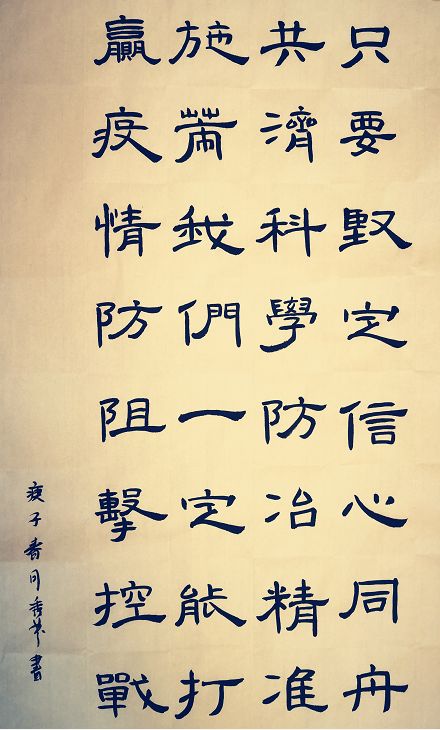 只要堅定信心同舟
共濟科學防治精准
施策我們一定能打
贏疫情防阻擊控戰
庚子春月秀書